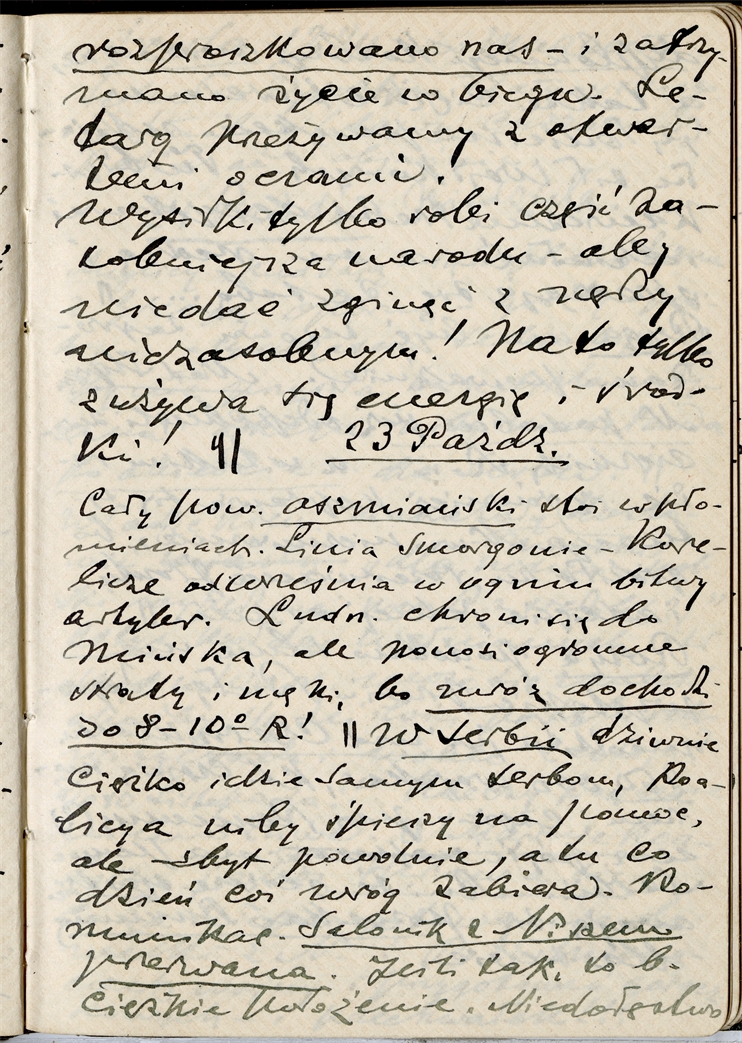 rozproszkowano nas – i zatrzy-
mano życie w biegu. Le-
targ przeżywamy z otwar-
temi oczami.
Wysiłki tylko robi część za-
sobniejsza narodu – aby
niedać zginąć z nędzy
niezasobnym! Na to tylko
zużywa się energię i środ-
ki! 4|| 23 Paźdz.
Cały pow. oszmiański stoi w pło-
mieniach. Linia Smorgonie – Kore-
licze od września w ogniu bitwy
artyler. Ludn. chroni się do
Mińska, ale ponosi ogromne
straty i męki, bo mróz dochodzi
do 8–10º R! || W Serbii dziwnie
ciężko idzie samym Serbom, Koa-
licya niby śpieszy na pomoc,
ale zbyt powolnie, a tu co
dzień coś wróg zabiera. Ko-
munikac. Salonik z Niszem
przerwana. Jeśli tak, to b.
ciężkie położenie. Niedołęstwo